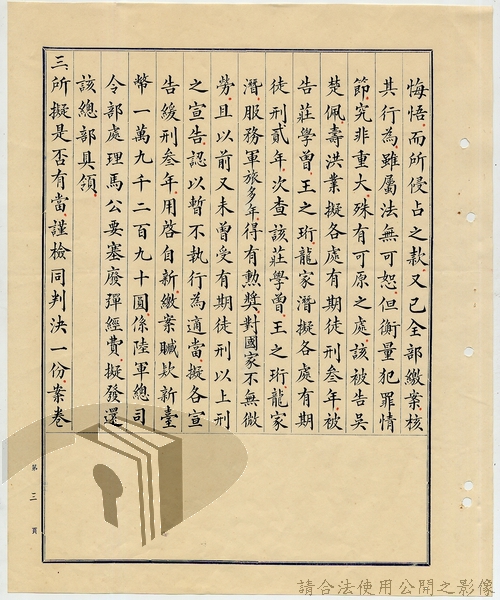 悔悟，而所侵占之款，又已全部繳案，核
其行為，雖屬法無可恕，但衡量犯罪情
節，究非重大，殊有可原之處，該被告吳
楚佩、壽洪業擬各處有期徒刑叁年，被
告莊學曾、王之珩、龍家潛擬各處有期
徒刑貳年，次查該莊學曾、王之珩、龍家
潛，服務軍旅多年，得有勲奬，對國家不無微
勞，且以前又未曾受有期徒刑以上刑
之宣告，認以暫不執行為適當，擬各宣
告緩刑叁年，用啓自新，繳案贓欵新臺
幣一萬九千二百九十圓，係陸軍總司
令部處理馬公要塞廢彈經費，擬發還
該總部具領。
三、所擬是否有當，謹檢同判決一份，案卷
第三頁
請合法使用公開之影像